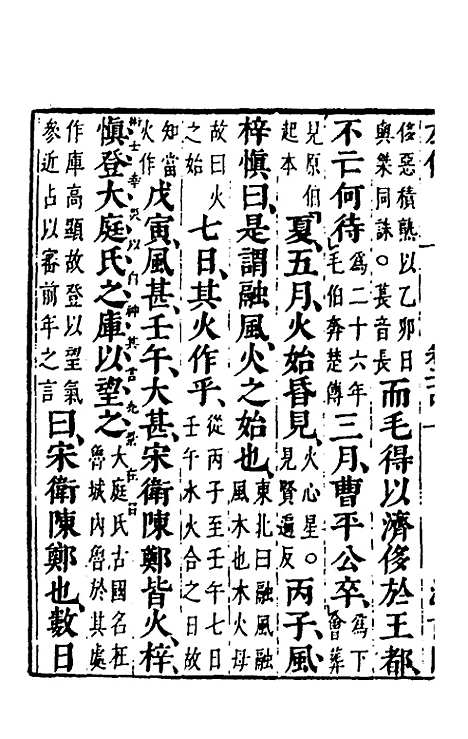 侈惡積熟以乙卯日
與桀同誅○萇音長
而毛得以濟侈於王都、
不亡何待
為二十六年
毛伯奔楚傳
三月、曹平公卒、
為下
會葬
見原伯
起本
夏、五月、火始昏見、
火心星○
見賢遍反
丙子、風、
梓慎曰、是謂融風、火之始也、
東北曰融風融
風木也木火母
故曰火
之始
七日、其火作乎、
從丙子至壬午七日
壬午水火合之日故
知當
火作
戊寅、風甚、壬午、大甚、宋衛陳鄭皆火、梓、
慎登大庭氏之庫以望之、
大庭氏古國名在
魯城內魯於其處
作庫高顯故登以望氣
參近占以審前年之言
曰、宋衛陳鄭也、數日